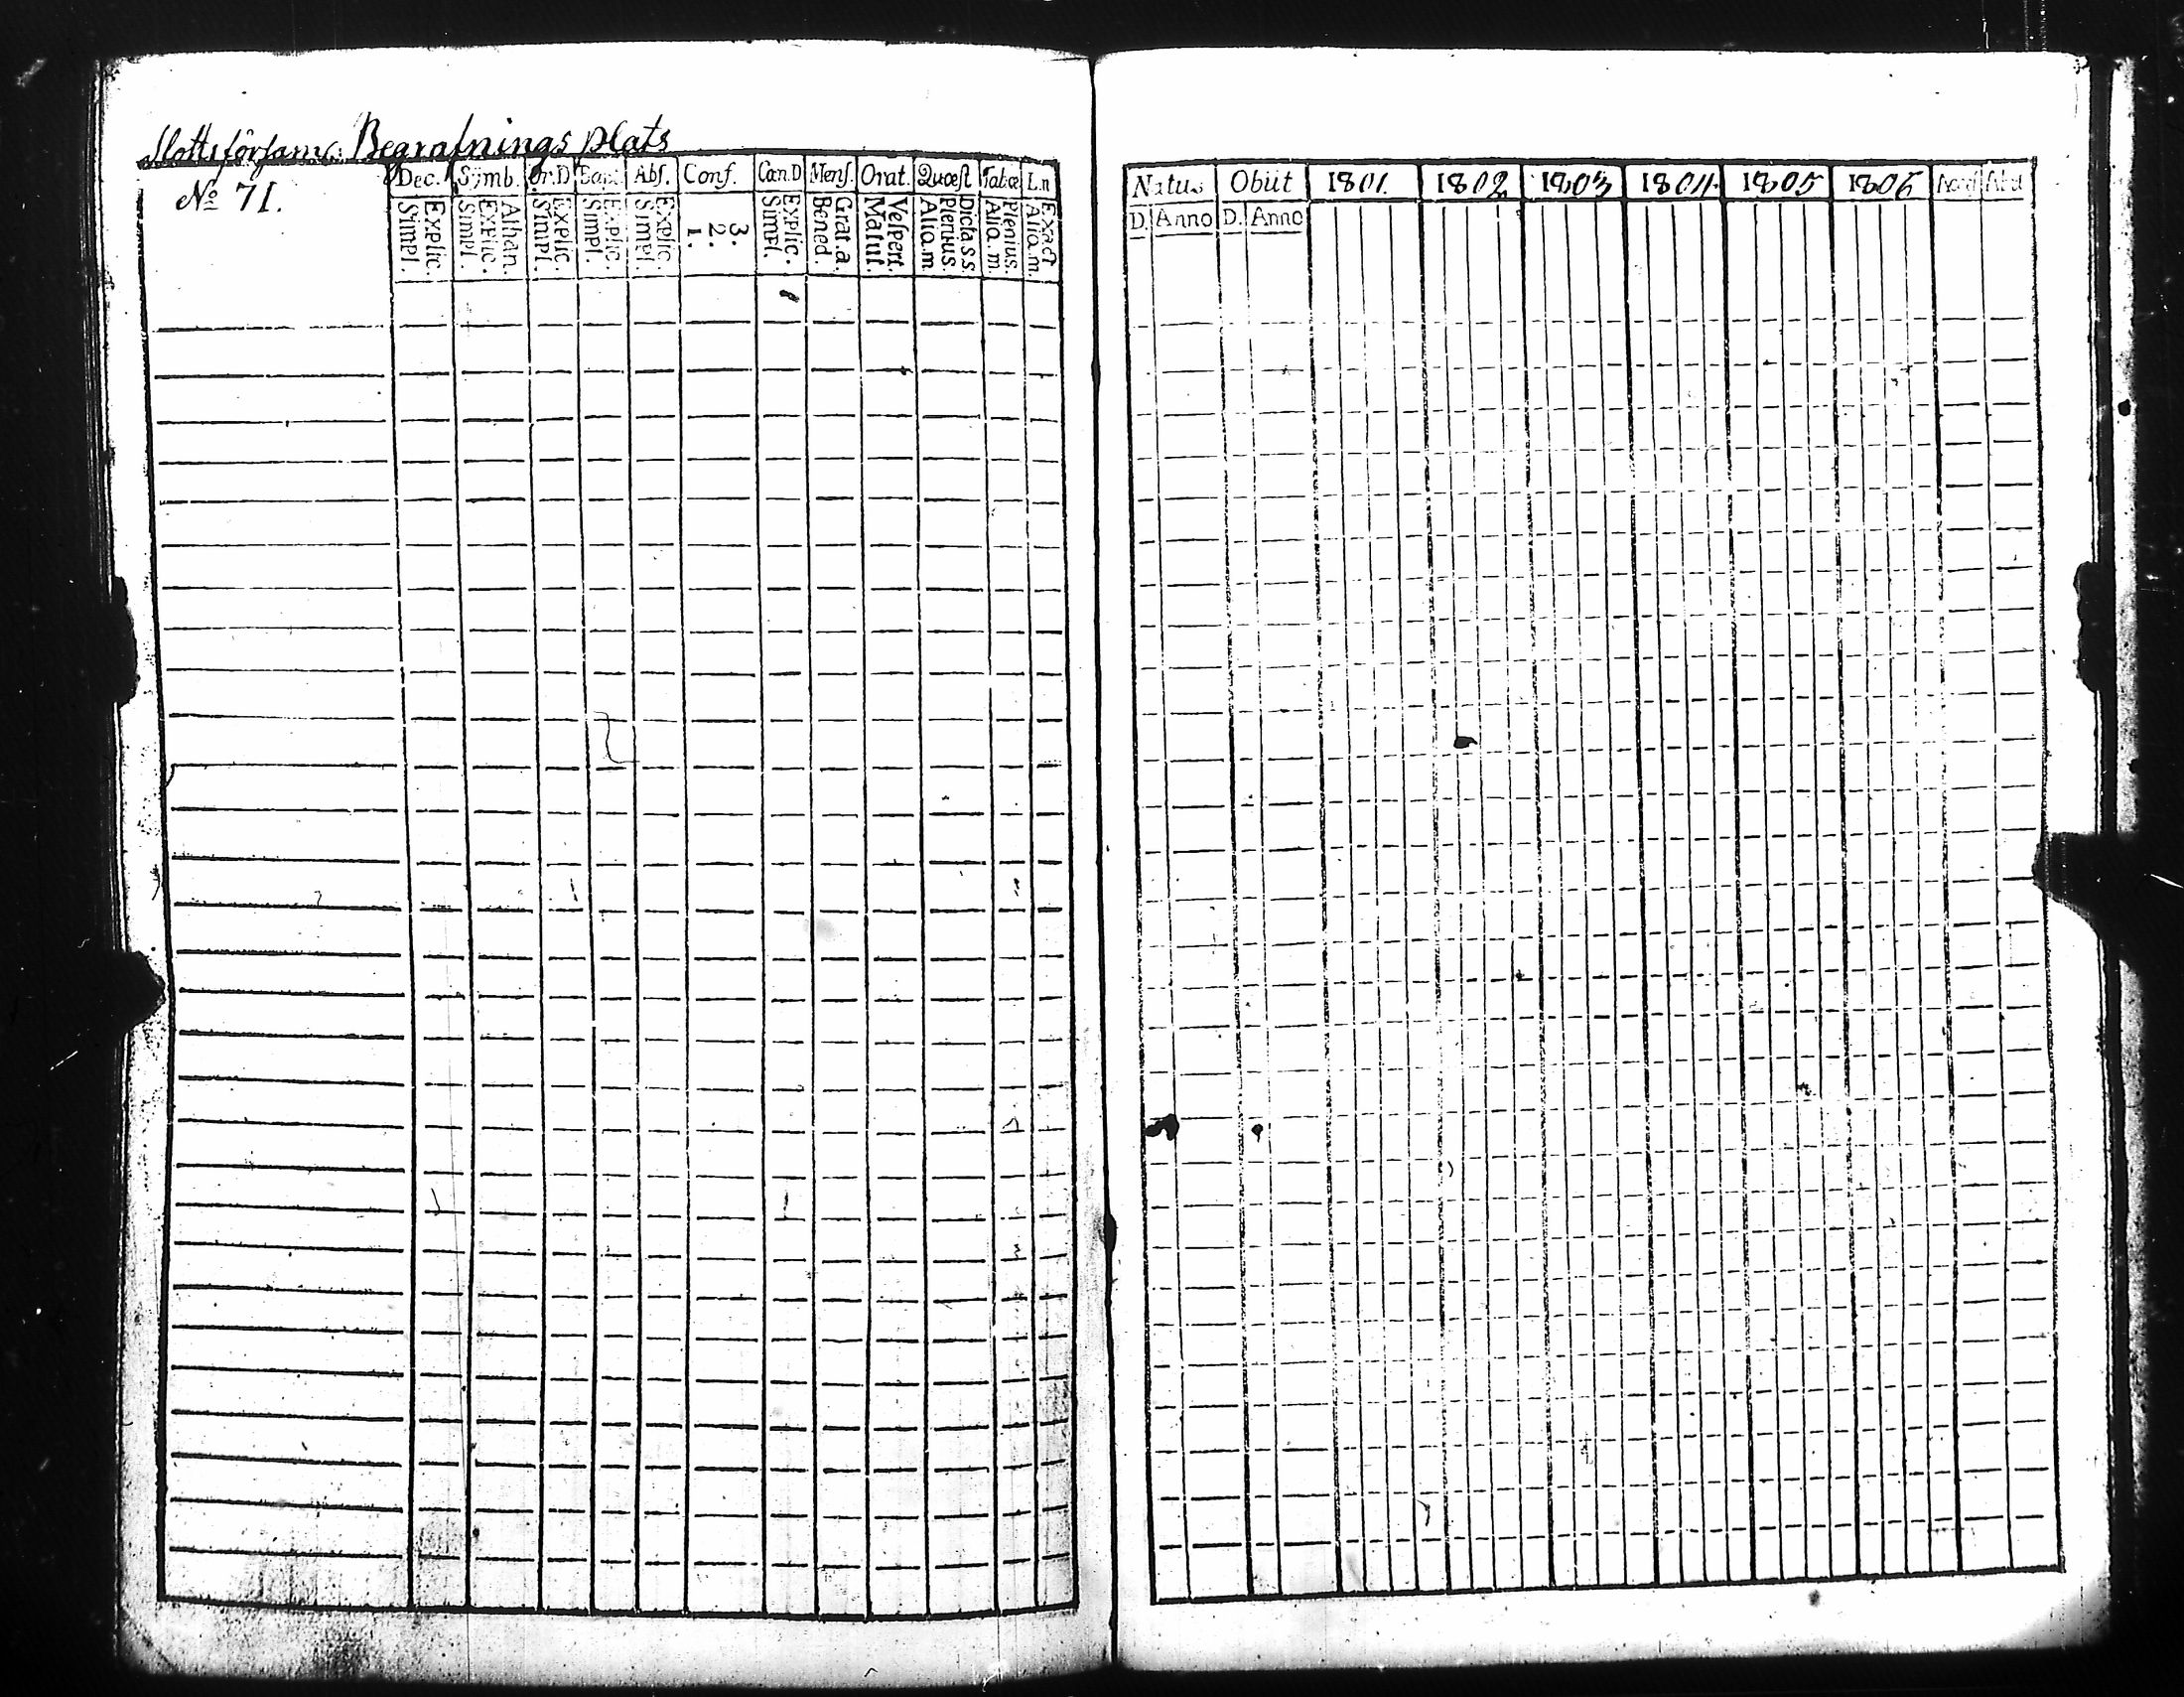 Slottsförsaml: Begrafnings plats
No 71.
Dec. Symb. Or.D Bapt. Abs. Conf. Cœn.D Mens. Orat. Quæst Tabœ L.n
Explic. Simpl. Athan. Explic. Simpl. Explic. Simpl. Explic. Simpl. Explic. Simpl. 3. 2. 1. Explic. Simpl. Grat.a. Bened. Vespert. Matut. Dicta s s Plenius. Alia.m. Plenius. Alia.m. Exact Alia.m.
Natus Obiit 1801. 1802 1803 1804 1805 1806
D. Anno D. Anno